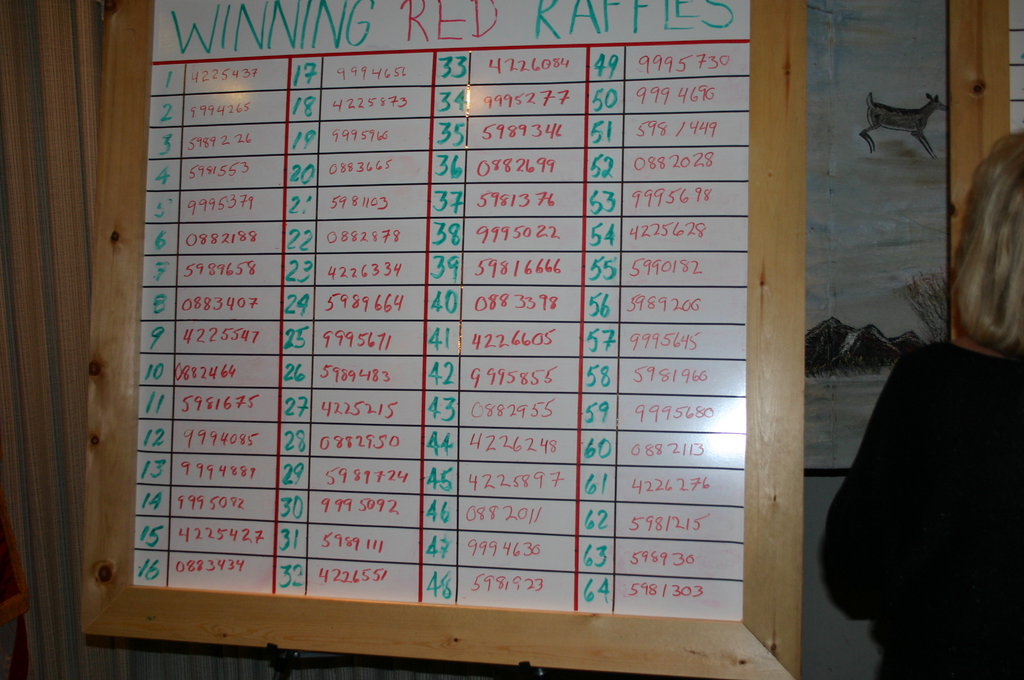 WINNING RED RAFFLES
1 4225437 17 9994651 33 4226084 49 9995730
2 9994265 18 4225873 34 9995277 50 9994690
3 5989226 19 9995960 35 5989346 51 5981449
4 5981553 20 0883665 36 0882699 52 0882028
5 9995379 21 5981103 37 5981376 53 9995698
6 0882188 22 0882878 38 9995022 54 4225628
7 5989658 23 4226334 39 59816666 55 5990182
8 0883407 24 5989664 40 0883398 56 5989200
9 4225547 25 9995671 41 4226605 57 9995645
10 0882464 26 5989483 42 9995855 58 5981960
11 5981675 27 4225215 43 0882955 59 9995680
12 9994085 28 0882950 44 4226248 60 0882113
13 9994889 29 5989724 45 4225897 61 4226276
14 9995082 30 9995092 46 0882011 62 5981215
15 4225427 31 5989111 47 9994630 63 598930
16 0883434 32 4226551 48 5981923 64 5981303